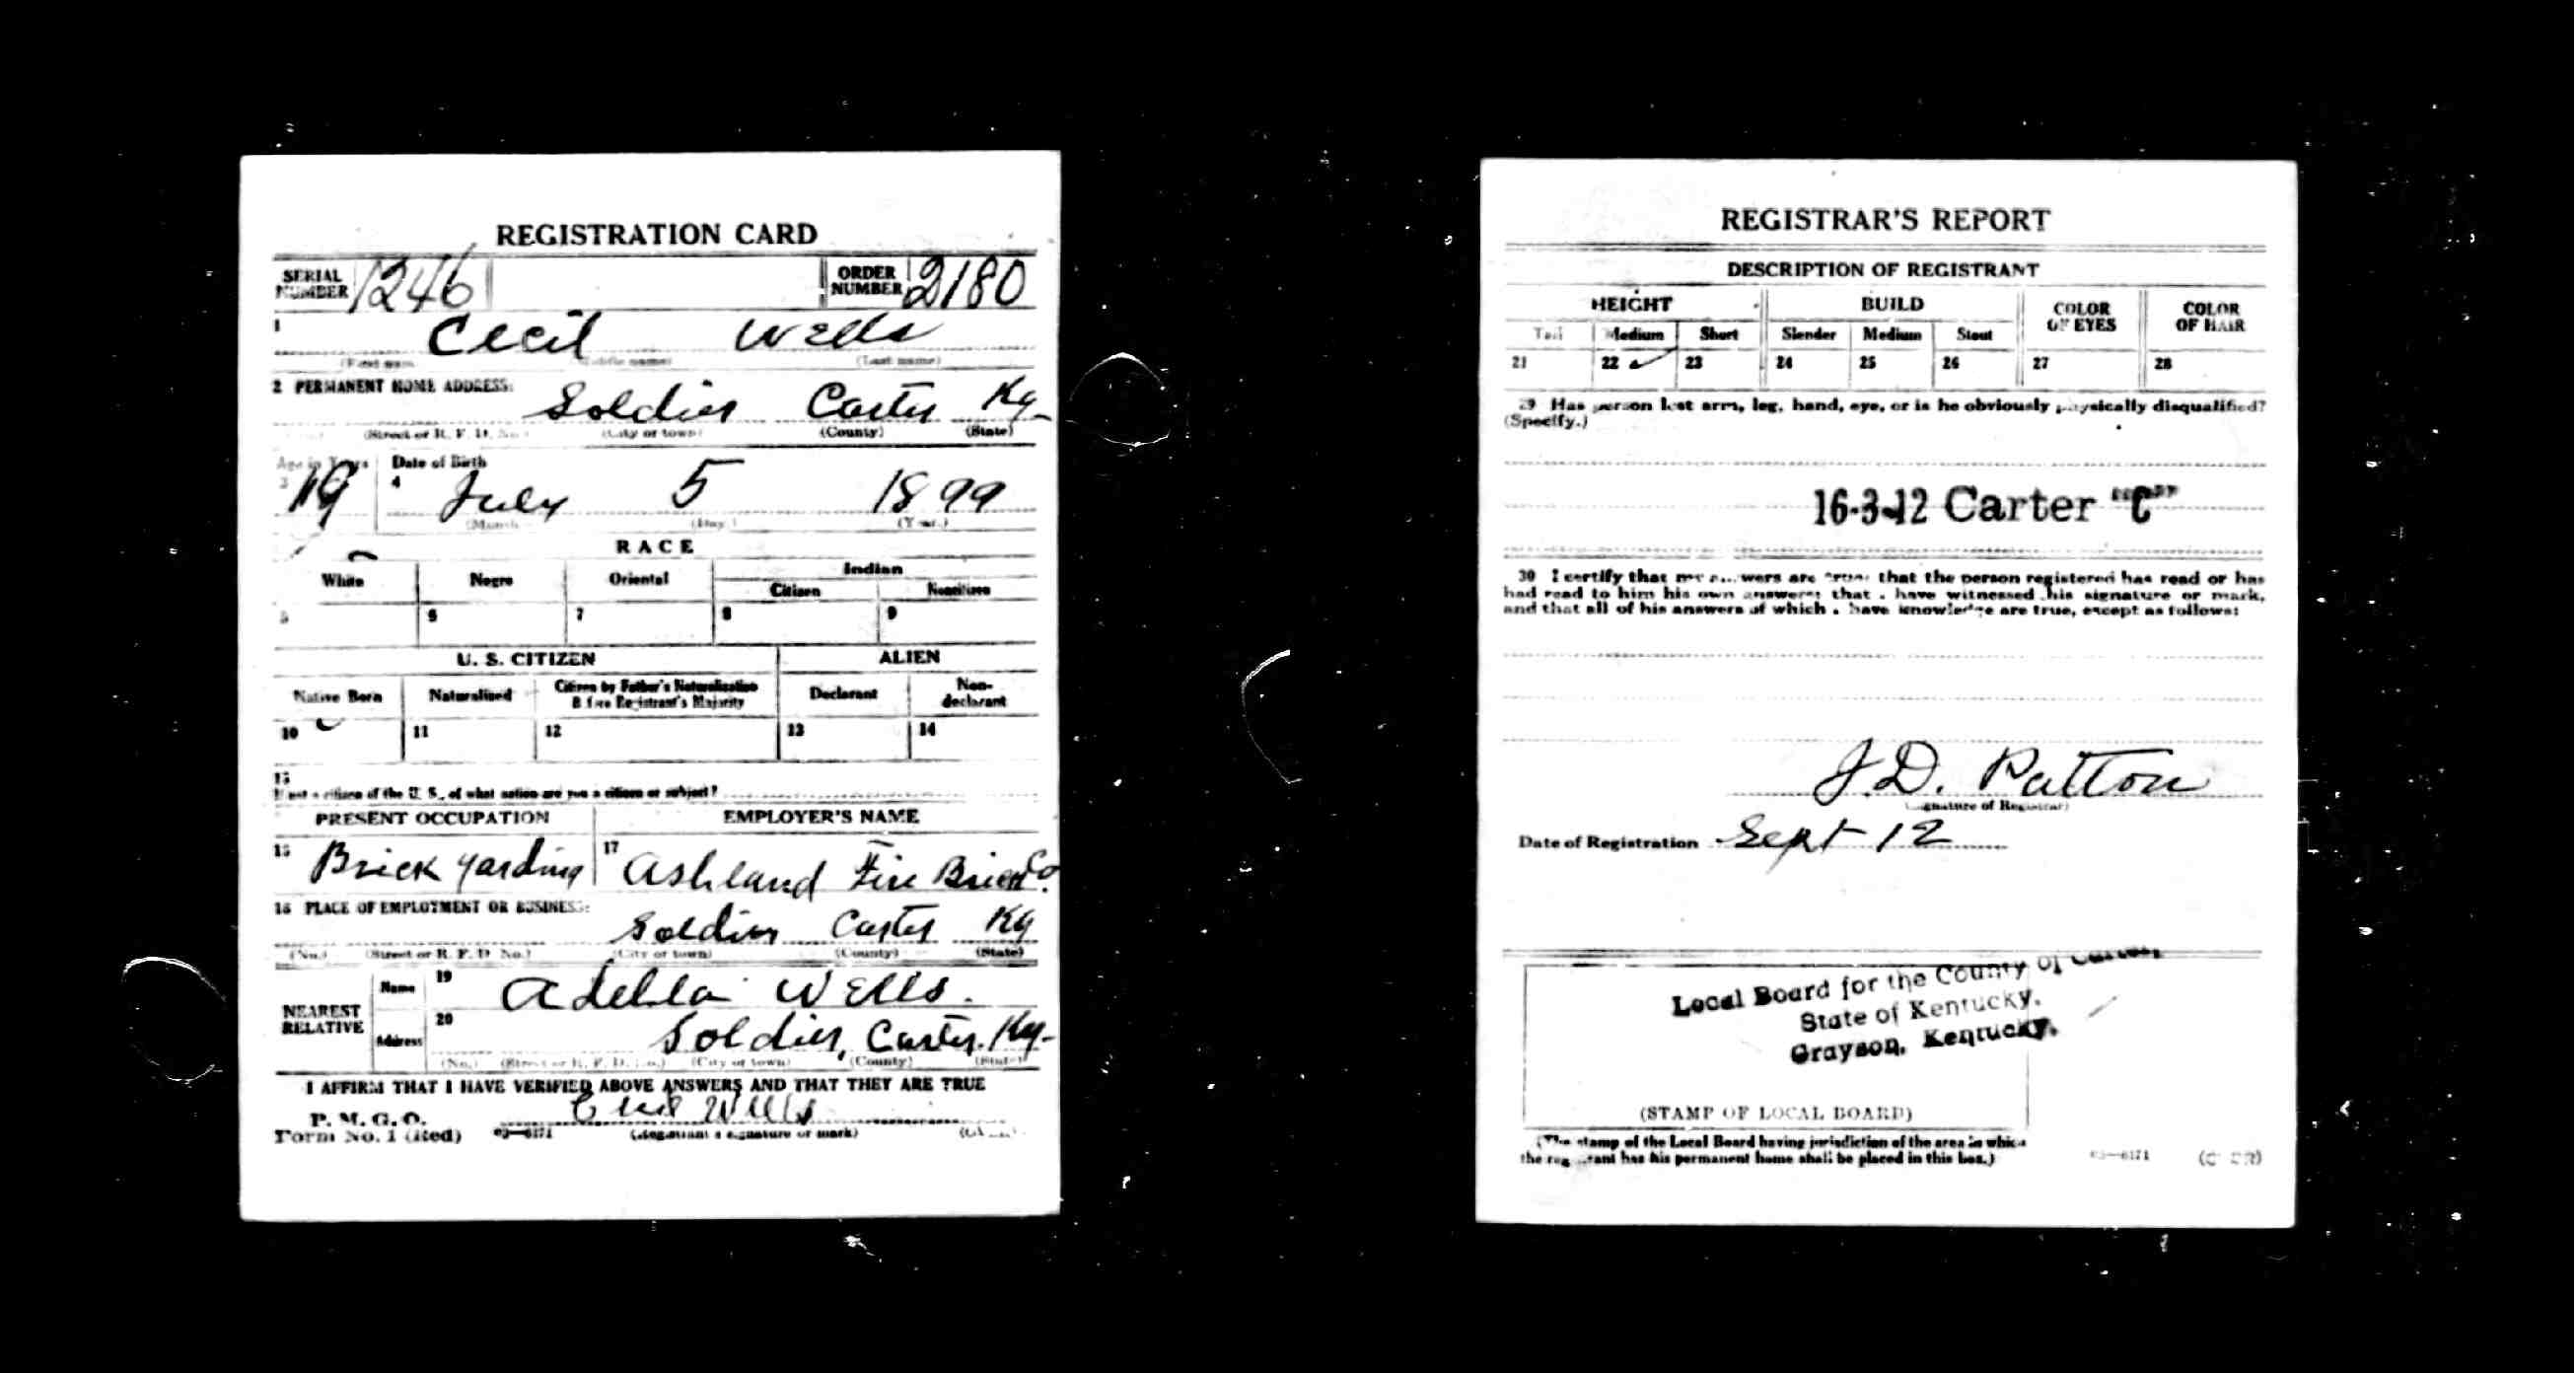 REGISTRATION CARD
SERIAL NUMBER 1246 ORDER NUMBER 2180
1 Cecil Wells
(First name) (Middle name) (Last name)
2 PERMANENT HOME ADDRESS:
Soldier Carter Ky-
(Street or R. F. D. No.) (City or town) (County) (State)
Age in Years Date of Birth
3 19 4 July 5 1899
(Month) (Day.) (Year.)
RACE
White Negro Oriental Indian
Citizen Noncitizen
5 6 7 8 9
U. S. CITIZEN ALIEN
Native Born Naturalized Citizen by Father's Naturalization Before Registrant's Majority Declarant Non-declarant
10 11 12 13 14
15
If not a citizen of the U. S., of what nation are you a citizen or subject?
PRESENT OCCUPATION EMPLOYER'S NAME
16 Brick yarding 17 Ashland Fire Brick Co.
18 PLACE OF EMPLOYMENT OR BUSINESS:
Soldier Carter Ky
(No.) (Street or R. F. D. No.) (City or town) (County) (State)
NEAREST RELATIVE Name 19 Adella Wells.
Address 20 Soldier, Carter. Ky-
(No.) (Street or R. F. D. No.) (City or town) (County) (State)
I AFFIRM THAT I HAVE VERIFIED ABOVE ANSWERS AND THAT THEY ARE TRUE
P. M. G. O.
Form No. 1 (Red) 03—6171 Cecil Wells
(Registrant's signature or mark)
REGISTRAR'S REPORT
DESCRIPTION OF REGISTRANT
HEIGHT BUILD COLOR OF EYES COLOR OF HAIR
Tall Medium Short Slender Medium Stout
21 22 ✓ 23 24 25 26 27 28
29 Has person lost arm, leg, hand, eye, or is he obviously physically disqualified?
(Specify.)
16-3-12 Carter "C"
30 I certify that my answers are true; that the person registered has read or has
had read to him his own answers; that I have witnessed his signature or mark,
and that all of his answers of which I have knowledge are true, except as follows:
J.D. Patton
(Signature of Registrar)
Date of Registration Sept 12
Local Board for the County of Carter,
State of Kentucky.
Grayson, Kentucky.
(STAMP OF LOCAL BOARD)
(The stamp of the Local Board having jurisdiction of the area in which
the registrant has his permanent home shall be placed in this box.)
03—6171